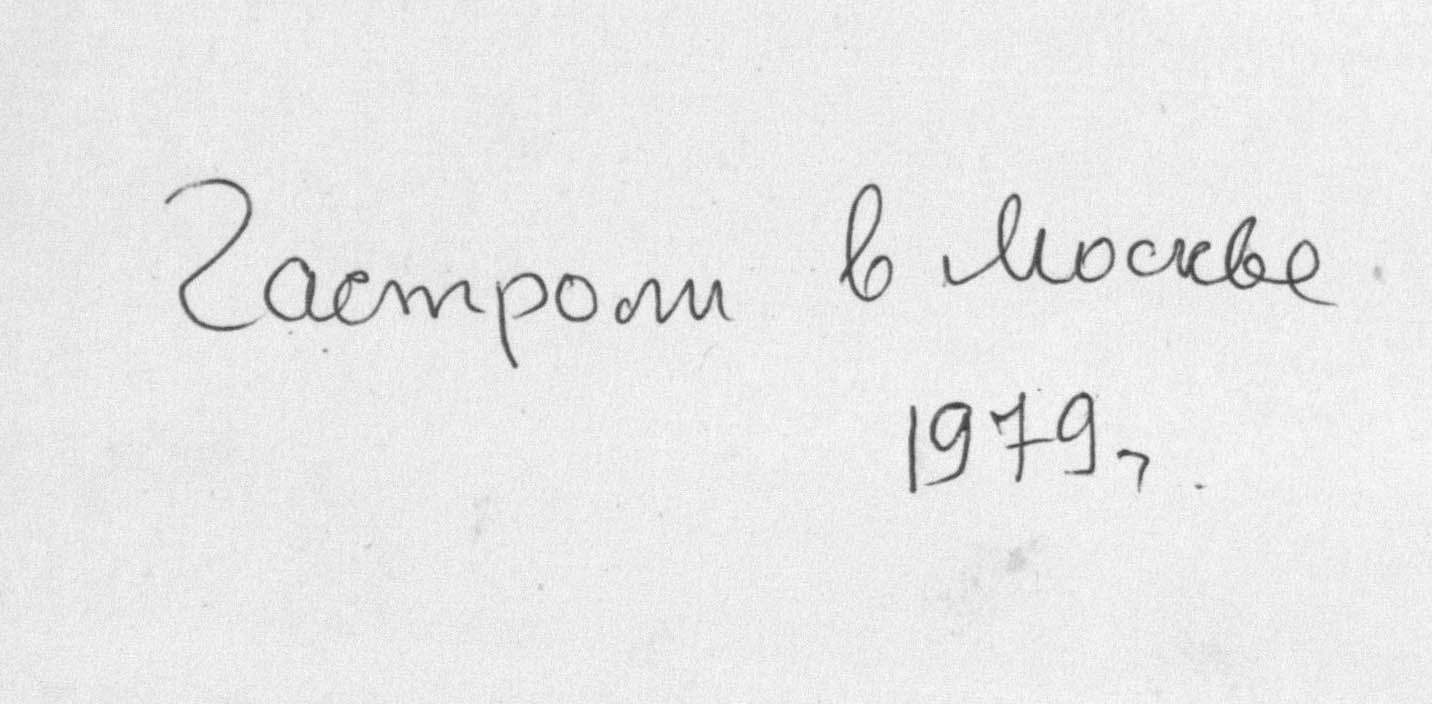 Гастроли в Москве
1979 г.